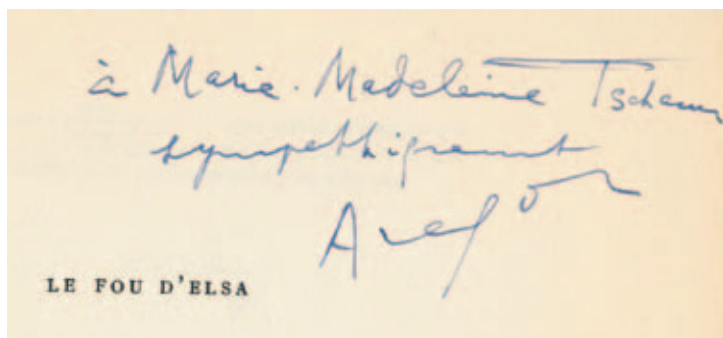 à Marie-Madeleine Tschann
sympathiquement
Aragon
LE FOU D'ELSA